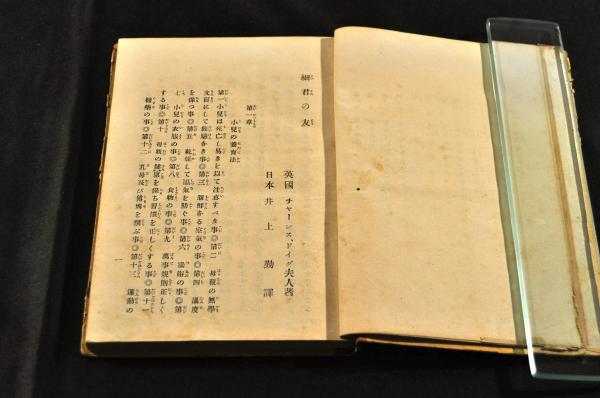 細君の友
英國 チャーレス、ドイグ夫人著
日本 井上勤譯
第一章
小兒の養育法
第一 小兒は死亡し易きを以て注意すべき事◎第二 母親の無學
文盲にして經驗なき事◎第三 新鮮なる空氣の事◎第四 溫度
を保つ事◎第五 乾燥して濕氣を防ぐ事◎第六 湯浴の事◎第
七 小兒の衣服の事◎第八 食物の事◎第九 萬事規則正しく
する事◎第十 母親の健康を保ち習慣を正しくする事◎第十一
種痘の事◎第十二 乳母及び傭婢を撰ぶ事◎第十三 運動の
一